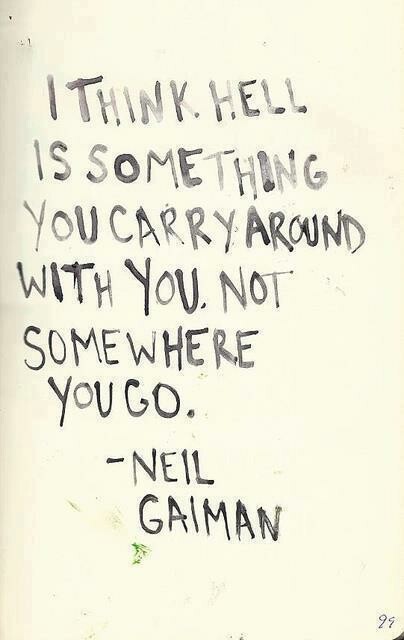 I THINK HELL
IS SOMETHING
YOU CARRY AROUND
WITH YOU. NOT
SOMEWHERE
YOU GO.
-NEIL
GAIMAN
99